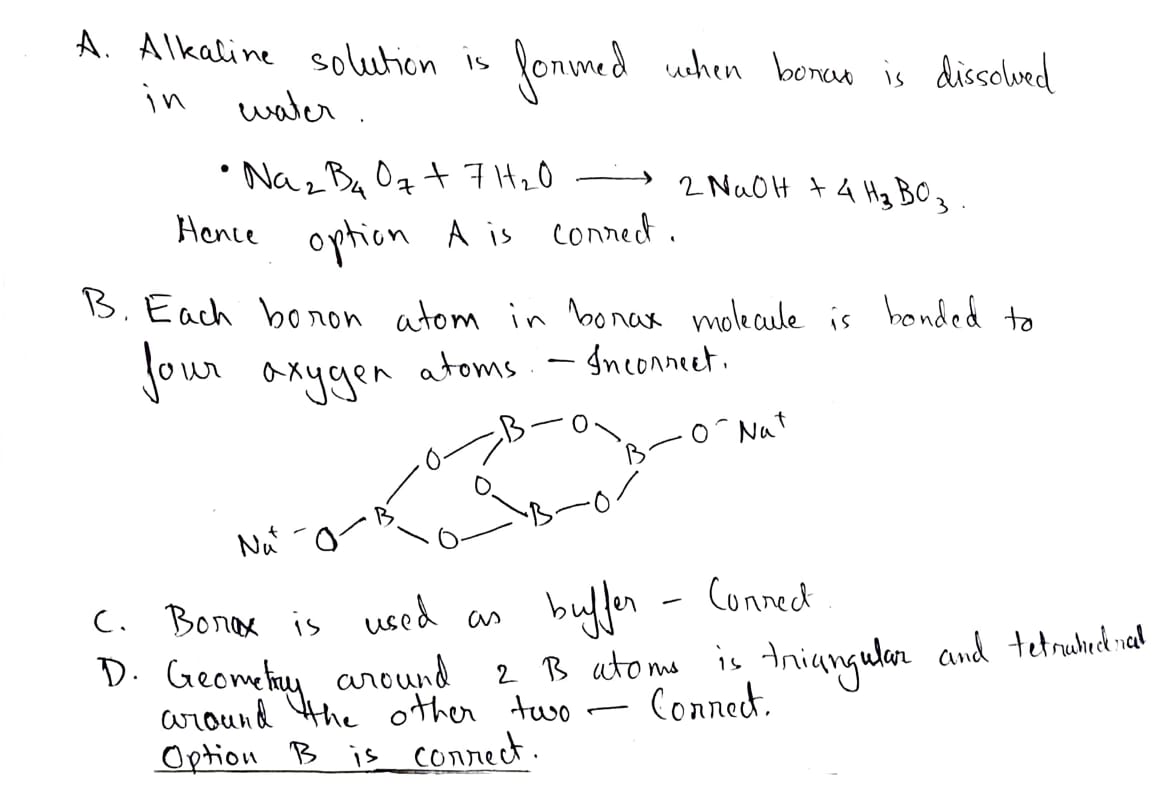 A. Alkaline solution is formed when borax is dissolved
in water.
• Na₂B₄O₇ + 7H₂O ⟶ 2NaOH + 4H₃BO₃.
Hence option A is correct.
B. Each boron atom in borax molecule is bonded to
four oxygen atoms. – Incorrect.
B – O
O B – O⁻ Na⁺
O
B B – O
Na⁺ ⁻O O
C. Borax is used as buffer – Correct.
D. Geometry around 2 B atoms is triangular and tetrahedral
around the other two – Correct.
Option B is correct.